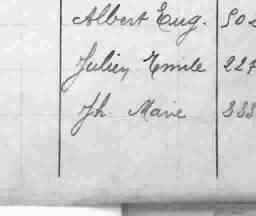 Albert Eug. 502
Julien Emile 227
Jh Marie 333